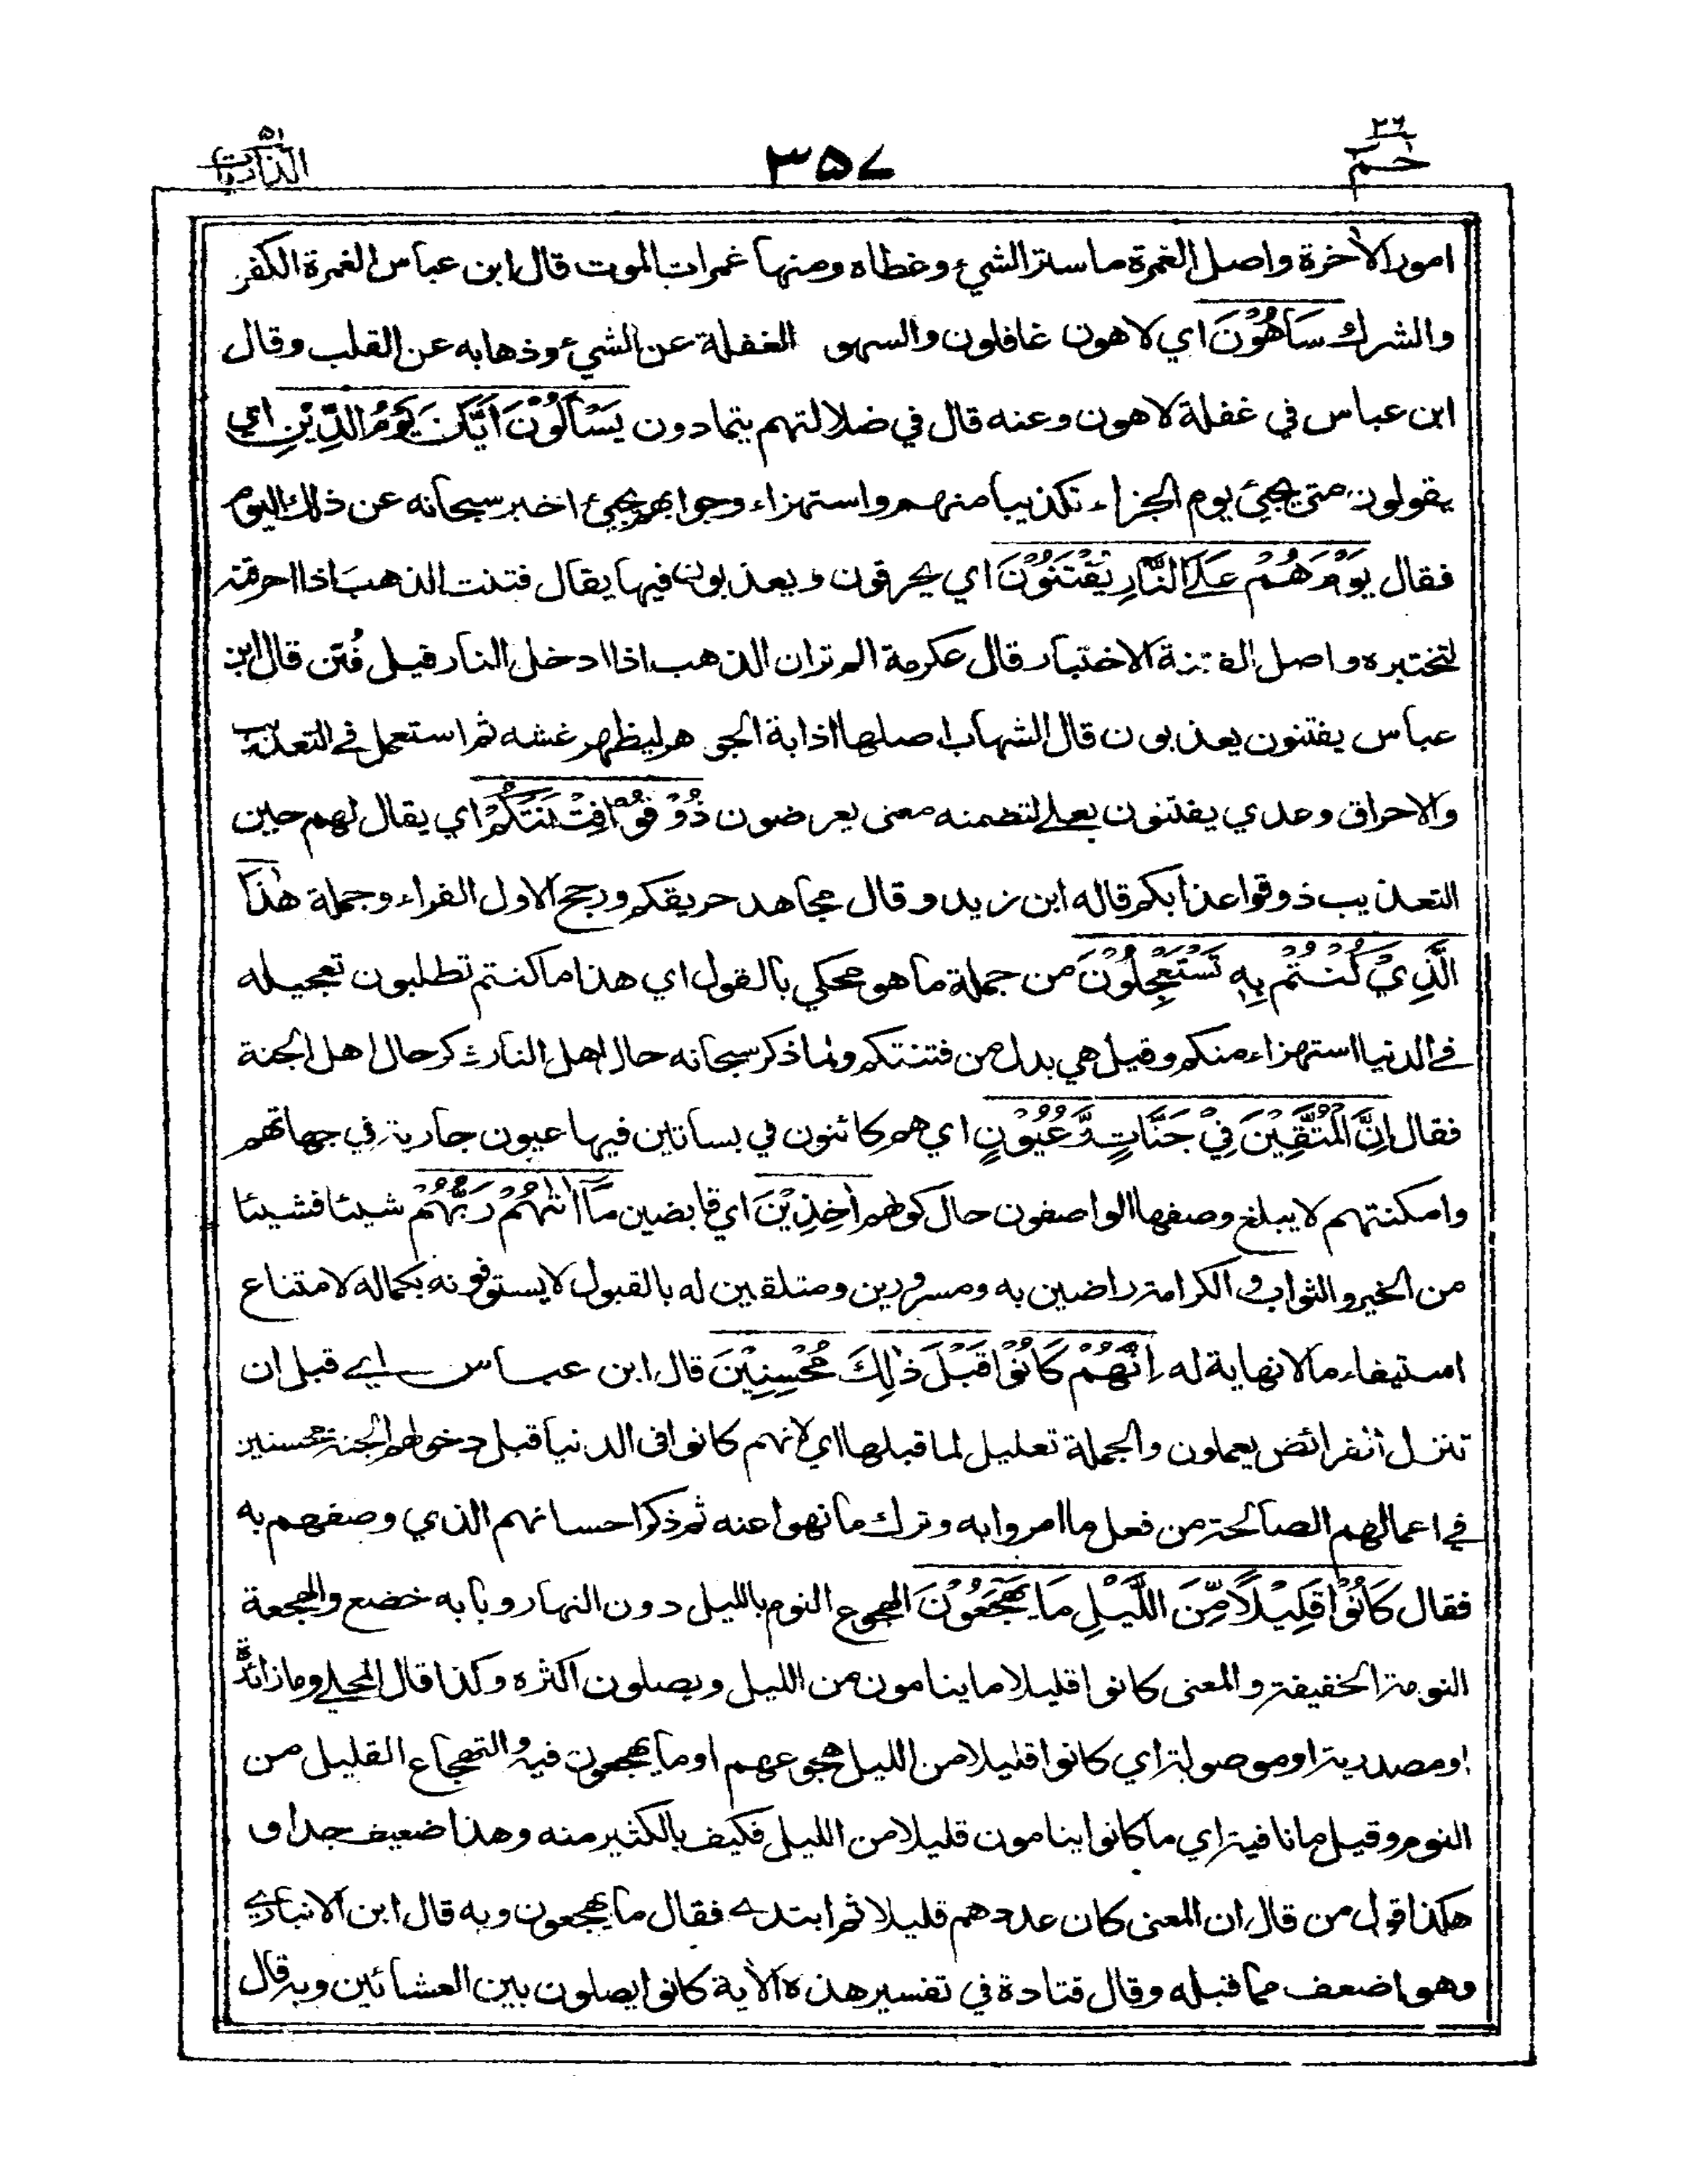 حٰم ٢٦
٣٥٧
الذاريات ٥١
امور الاٰخرة واصل الغمرة ما ستر الشيء وغطاه ومنها غمرات الموت قال ابن عباس الغمرة الكفر
والشرك سَاهُوْنَ اي لاهون غافلون والسهو الغفلة عن الشيء وذهابه عن القلب وقال
ابن عباس في غفلة لاهون وعنه قال في ضلالتهم يتمادون يَسْاَلُوْنَ اَيَّانَ يَوْمُ الدِّيْنِ اي
يقولون متى يجيئ يوم الجزاء تكذيبا منهم واستهزاء وجوابهم يجيئ اخبر سبحانه عن ذلك اليوم
فقال يَوْمَ هُمْ عَلَى النَّارِ يُفْتَنُوْنَ اي يحرقون ويعذبون فيها يقال فتنت الذهب اذا احرقته
لتختبره واصل الفتنة الاختبار قال عكرمة الم تر ان الذهب اذا ادخل النار قيل فُتن قال ابن
عباس يفتنون يعذبون قال الشهاب اصلها اذابة الجوهر ليظهر غشه ثم استعمل في التعذيب
والاحراق وعدي يفتنون بعلى لتضمنه معنى يعرضون ذُوْقُوْا فِتْنَتَكُمْ اي يقال لهم حين
التعذيب ذوقوا عذابكم قاله ابن زيد وقال مجاهد حريقكم ورجح الاول الفراء وجملة هٰذَا
الَّذِيْ كُنْتُمْ بِهٖ تَسْتَعْجِلُوْنَ من جملة ما هو محكي بالقول اي هذا ما كنتم تطلبون تعجيله
في الدنيا استهزاء منكم وقيل هي بدل من فتنتكم ولما ذكر سبحانه حال اهل النار ذكر حال اهل الجنة
فقال اِنَّ الْمُتَّقِيْنَ فِيْ جَنَّاتٍ وَّعُيُوْنٍ اي هم كائنون في بساتين فيها عيون جارية في جهاتهم
وامكنتهم لا يبلغ وصفها الواصفون حال كونهم اٰخِذِيْنَ اي قابضين مَآ اٰتٰهُمْ رَبُّهُمْ شيئا فشيئا
من الخير والثواب والكرامة راضين به ومسرورين ومتلقين له بالقبول لا يستوفونه بكماله لامتناع
استيفاء ما لا نهاية له اِنَّهُمْ كَانُوْا قَبْلَ ذٰلِكَ مُحْسِنِيْنَ قال ابن عباس اي قبل ان
تنزل الفرائض يعملون والجملة تعليل لما قبلها اي لانهم كانوا في الدنيا قبل دخولهم الجنة محسنين
في اعمالهم الصالحة من فعل ما امروا به وترك ما نهوا عنه ثم ذكر احسانهم الذي وصفهم به
فقال كَانُوْا قَلِيْلًا مِّنَ اللَّيْلِ مَا يَهْجَعُوْنَ الهجوع النوم بالليل دون النهار وبابه خضع والهجعة
النومة الخفيفة والمعنى كانوا قليلا ما ينامون من الليل ويصلون اكثره وكذا قال المحلي وما زائدة
او مصدرية او موصولة اي كانوا قليلا من الليل هجوعهم او ما يهجعون فيه والتهجاع القليل من
النوم وقيل ما نافية اي ما كانوا ينامون قليلا من الليل فكيف بالكثير منه وهذا ضعيف جدا و
هكذا قول من قال ان المعنى كان عددهم قليلا ثم ابتدى فقال ما يهجعون وبه قال ابن الانباري
وهو اضعف مما قبله وقال قتادة في تفسير هذه الاٰية كانوا يصلون بين العشائين وبه قال